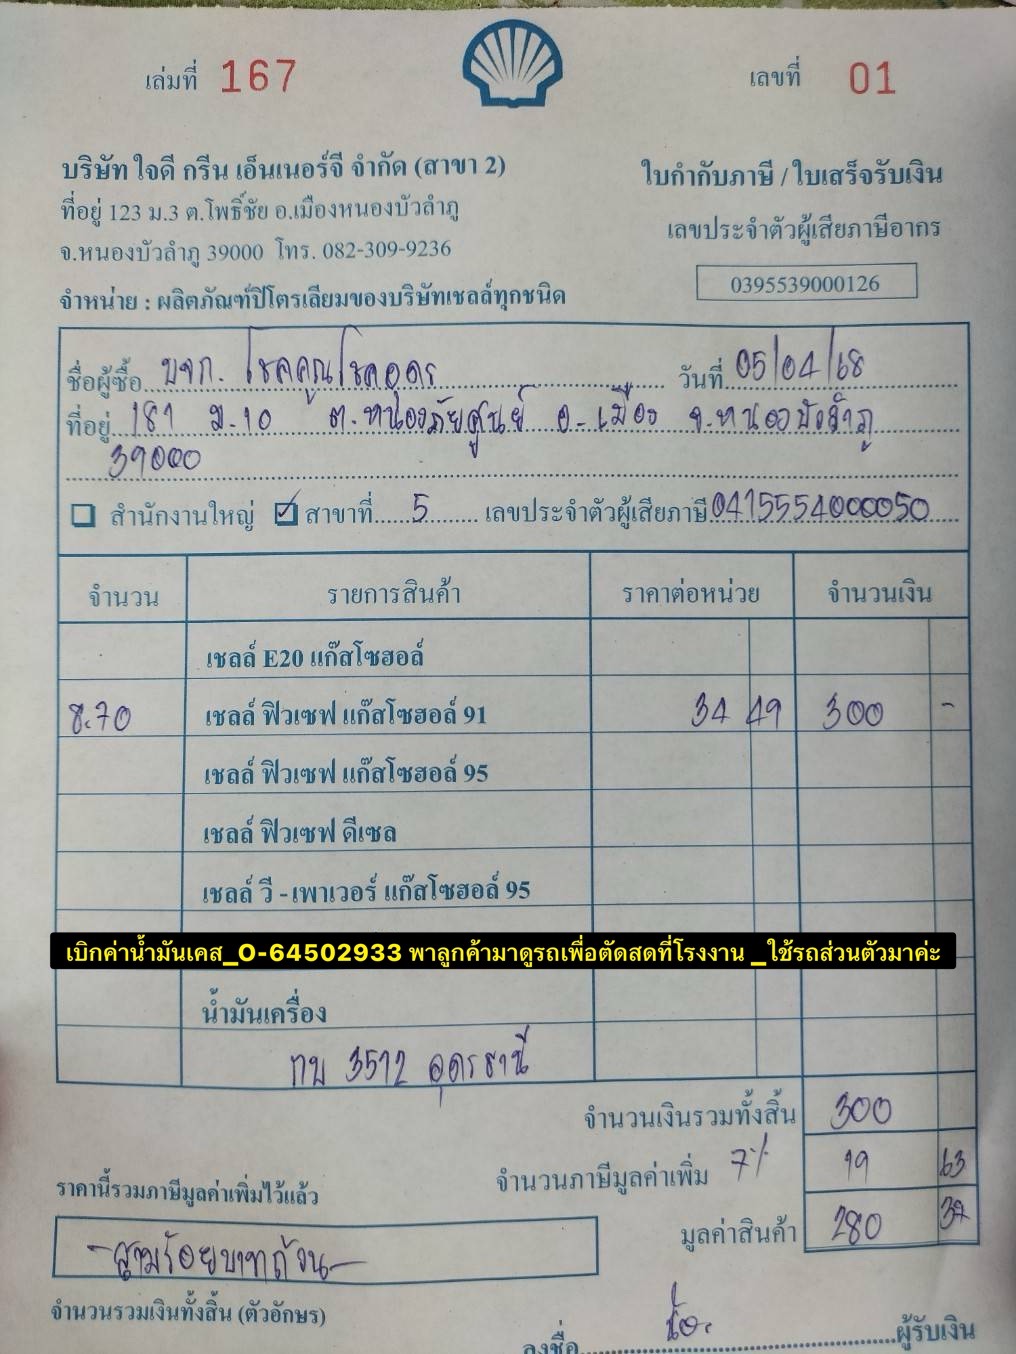 เล่มที่ 167
เลขที่ 01
บริษัท ใจดี กรีน เอ็นเนอร์จี จำกัด (สาขา 2)
ใบกำกับภาษี / ใบเสร็จรับเงิน
ที่อยู่ 123 ม.3 ต.โพธิ์ชัย อ.เมืองหนองบัวลำภู
เลขประจำตัวผู้เสียภาษีอากร
จ.หนองบัวลำภู 39000 โทร. 082-309-9236
0395539000126
จำหน่าย : ผลิตภัณฑ์ปิโตรเลียมของบริษัทเชลล์ทุกชนิด
ชื่อผู้ซื้อ บจก. โชคคูณโชคอุดร วันที่ 05/04/68
ที่อยู่ 181 ม.10 ต.หนองภัยศูนย์ อ.เมือง จ.หนองบัวลำภู
39000
สำนักงานใหญ่ สาขาที่ 5 เลขประจำตัวผู้เสียภาษี 0415554000050
จำนวน รายการสินค้า ราคาต่อหน่วย จำนวนเงิน
เชลล์ E20 แก๊สโซฮอล์
8.70 เชลล์ ฟิวเซฟ แก๊สโซฮอล์ 91 34 49 300 -
เชลล์ ฟิวเซฟ แก๊สโซฮอล์ 95
เชลล์ ฟิวเซฟ ดีเซล
เชลล์ วี - เพาเวอร์ แก๊สโซฮอล์ 95
เบิกค่าน้ำมันเคส_O-64502933 พาลูกค้ามาดูรถเพื่อตัดสดที่โรงงาน _ใช้รถส่วนตัวมาค่ะ
น้ำมันเครื่อง
กบ 3512 อุดรธานี
จำนวนเงินรวมทั้งสิ้น 300
จำนวนภาษีมูลค่าเพิ่ม 7% 19 63
ราคานี้รวมภาษีมูลค่าเพิ่มไว้แล้ว
มูลค่าสินค้า 280 37
-สามร้อยบาทถ้วน-
จำนวนรวมเงินทั้งสิ้น (ตัวอักษร)
ลงชื่อ ผู้รับเงิน